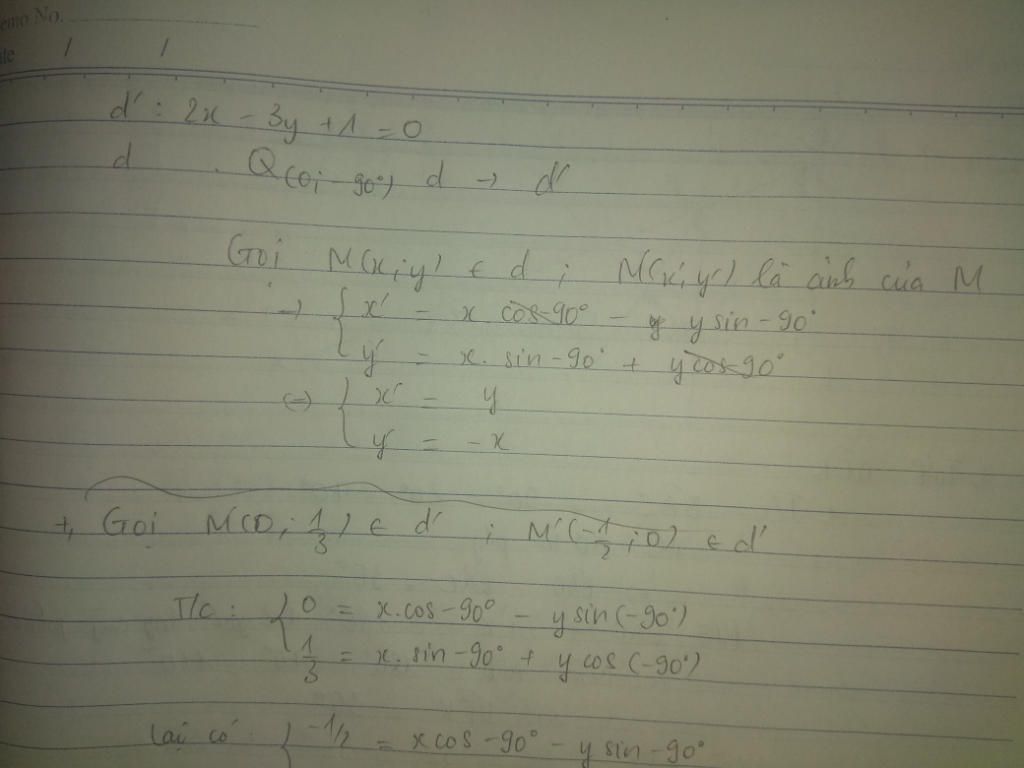 emo No.
te / /
d' : 2x - 3y + 1 = 0
d . Q(O; -90°) d → d'
Gọi M(x;y) ∈ d ; M'(x';y') là ảnh của M
→ { x' = x cos-90° - y sin-90°
y' = x. sin-90° + y cos-90°
⇔ { x' = y
y' = -x
+, Gọi M'(0; 1/3) ∈ d' ; M'(-1/2; 0) ∈ d'
T/c : { 0 = x.cos-90° - y sin(-90°)
1/3 = x. sin-90° + y cos(-90°)
Lại có : { -1/2 = x cos-90° - y sin-90°